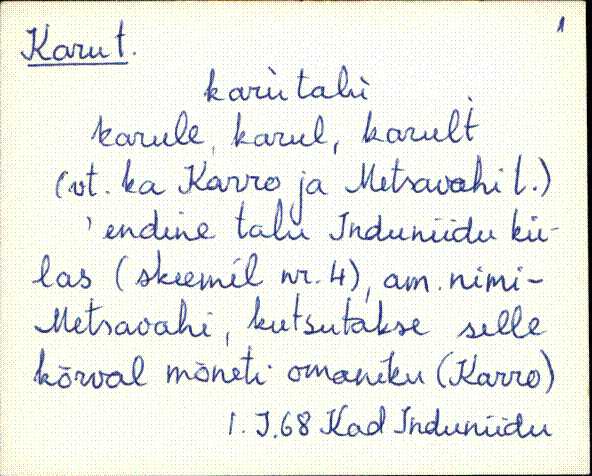 1
Karu t.
karu talu
karule, karul, karult
(vt. ka Karro ja Metsavahi t.)
'endine talu Induniidu kü-
las (skeemil nr. 4), am. nimi -
Metsavahi, kutsutakse selle
kõrval mõneti omaniku (Karro)
1. J.68 Kad Induniidu